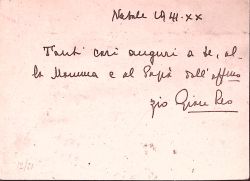 Natale 1941-XX
Tanti cari auguri a te, al-
la Mamma e al Papà dall'affmo
zio